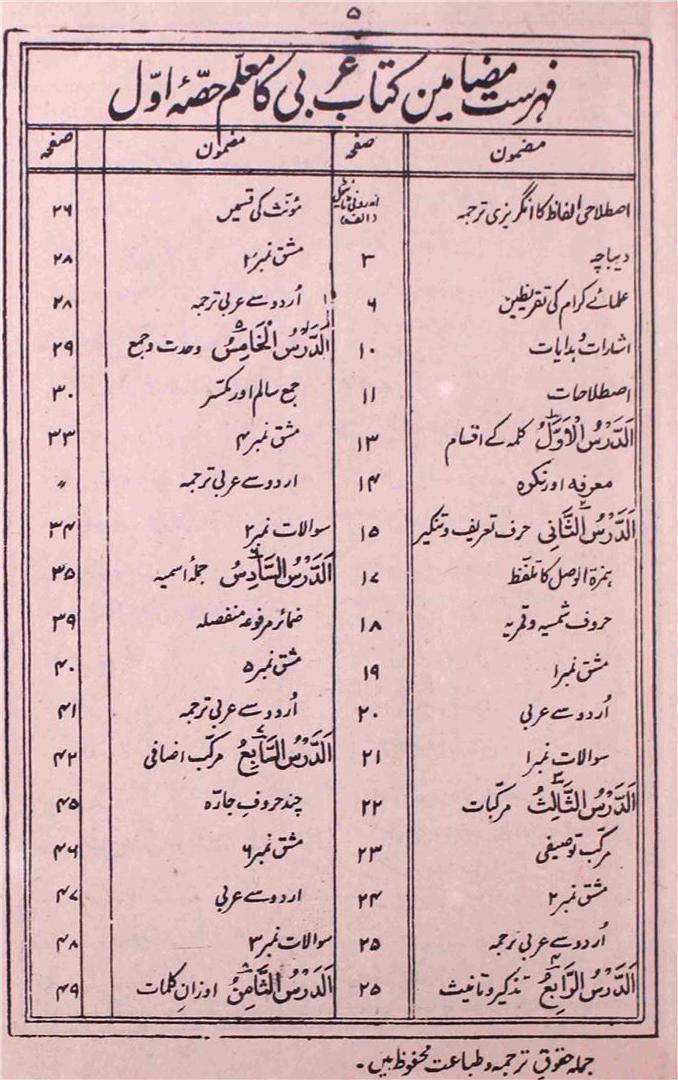 ۵
فہرست مضامین کتاب عربی کا معلم حصّۂ اوّل
مضمون صفحہ
اصطلاحی الفاظ کا انگریزی ترجمہ اندرونی ٹائٹل (الف)
دیباچہ ۳
علمائے کرام کی تقریظیں ۶
اشارات و ہدایات ۱۰
اصطلاحات ۱۱
اَلدَّرْسُ الْاَوَّلُ کلمہ کے اقسام ۱۳
معرفہ اور نکرہ ۱۴
اَلدَّرْسُ الثَّانِی ۲ حرف تعریف و تنکیر ۱۵
ہمزۃ الوصل کا تلفّظ ۱۷
حروف شمسیہ و قمریہ ۱۸
مشق نمبر۱ ۱۹
اُردو سے عربی ۲۰
سوالات نمبر۱ ۲۱
اَلدَّرْسُ الثَّالِثُ ۳ مرکّبات ۲۲
مرکّب توصیفی ۲۳
مشق نمبر۲ ۲۴
اُردو سے عربی ترجمہ ۲۵
اَلدَّرْسُ الرَّابِعُ ۴ تذکیر و تانیث ۲۵
مضمون صفحہ
مؤنّث کی قسمیں ۲۶
مشق نمبر۳ ۲۸
اُردو سے عربی ترجمہ ۲۸
اَلدَّرْسُ الْخَامِسُ ۵ وحدت و جمع ۲۹
جمع سالم اور مکسّر ۳۰
مشق نمبر۴ ۳۳
اردو سے عربی ترجمہ 〃
سوالات نمبر۲ ۳۴
اَلدَّرْسُ السَّادِسُ ۶ جملۂ اسمیہ ۳۵
ضمائر مرفوعہ منفصلہ ۳۹
مشق نمبر۵ ۴۰
اُردو سے عربی ترجمہ ۴۱
اَلدَّرْسُ السَّابِعُ ۷ مرکّب اضافی ۴۲
چند حروفِ جارّہ ۴۵
مشق نمبر۶ ۴۶
اردو سے عربی ۴۷
سوالات نمبر۳ ۴۸
اَلدَّرْسُ الثَّامِنُ ۸ اوزانِ کلمات ۴۹
جملہ حقوقِ ترجمہ و طباعت محفوظ ہیں۔